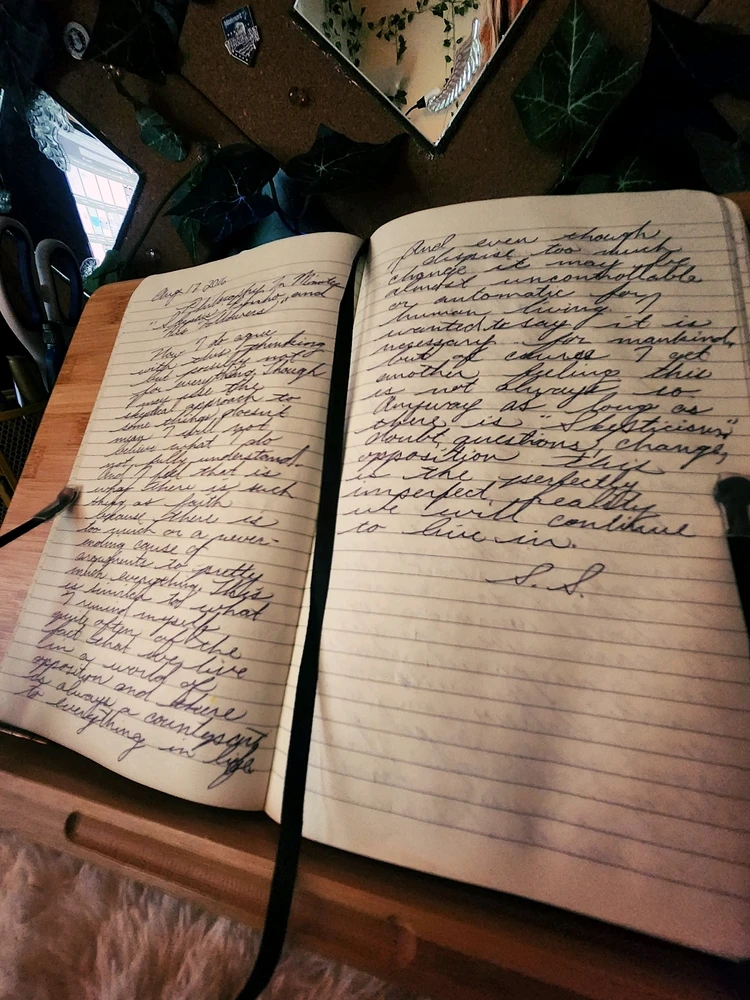 Aug. 17, 2016
"Philosophy In Minutes
"Skepsis" Pyrrho, and
his followers"
Now I do agree
with this thinking
but possibly not
for everything, though
I may use the
skeptical approach to
some things doesn't
mean I still not
believe what I do
not fully understand.
And all that is
what there is such
thing as faith
because there is
too much or a never-
ending cause of
arguments to pretty
much everything. This
is similar to what
I remind myself
quite often of the
fact that we live
in a world of
opposition and there
is always a
to everything in life
And even though
I despise too much
change it may be
almost uncontrollable
or automatic for
human living I
wanted to say it is
necessary for mankind,
but of course I get
another feeling this
is not always so
Anyway as long as
there is "Skepticism"
doubt, questions, change,
opposition this
is the perfectly
imperfect reality
we will continue
to live in.
S.S.